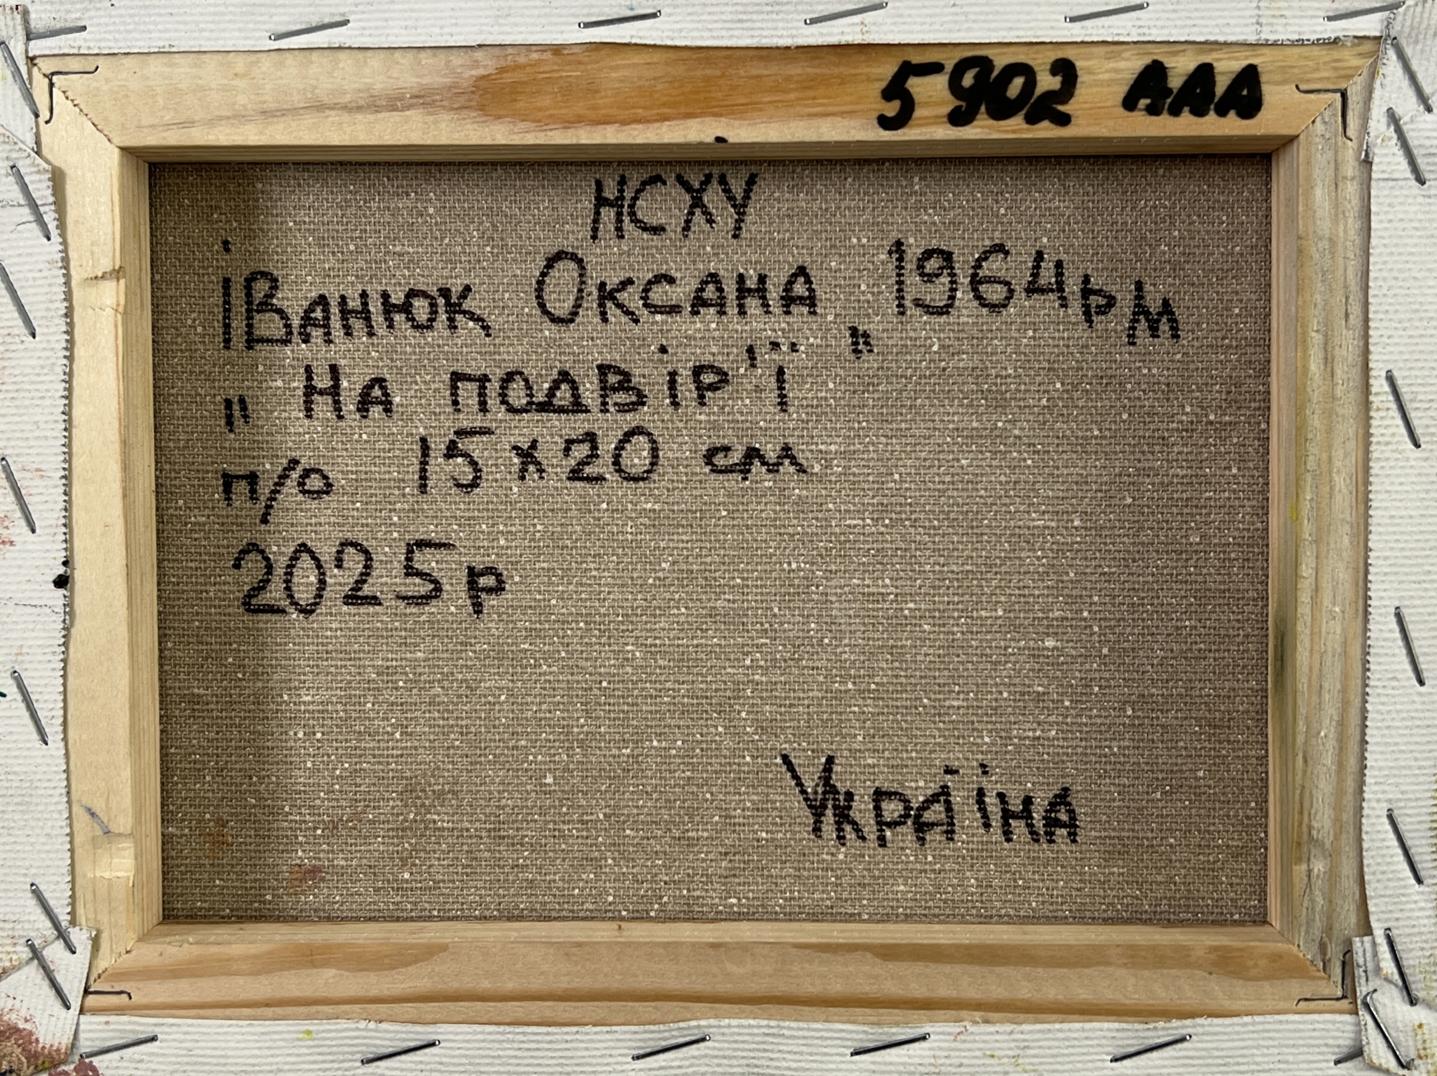 5902 ААА
НСХУ
Іванюк Оксана 1964рм
" На подвір'ї "
п/о 15х20 см
2025р
Україна